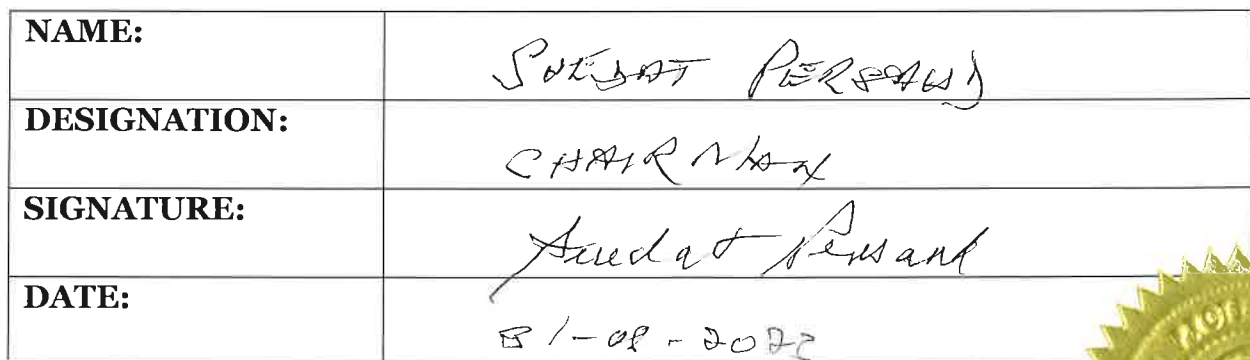 NAME: SUEDAT PERSAUD
DESIGNATION: CHAIRMAN
SIGNATURE: Suedat Persaud
DATE: 31-08-2022
OF